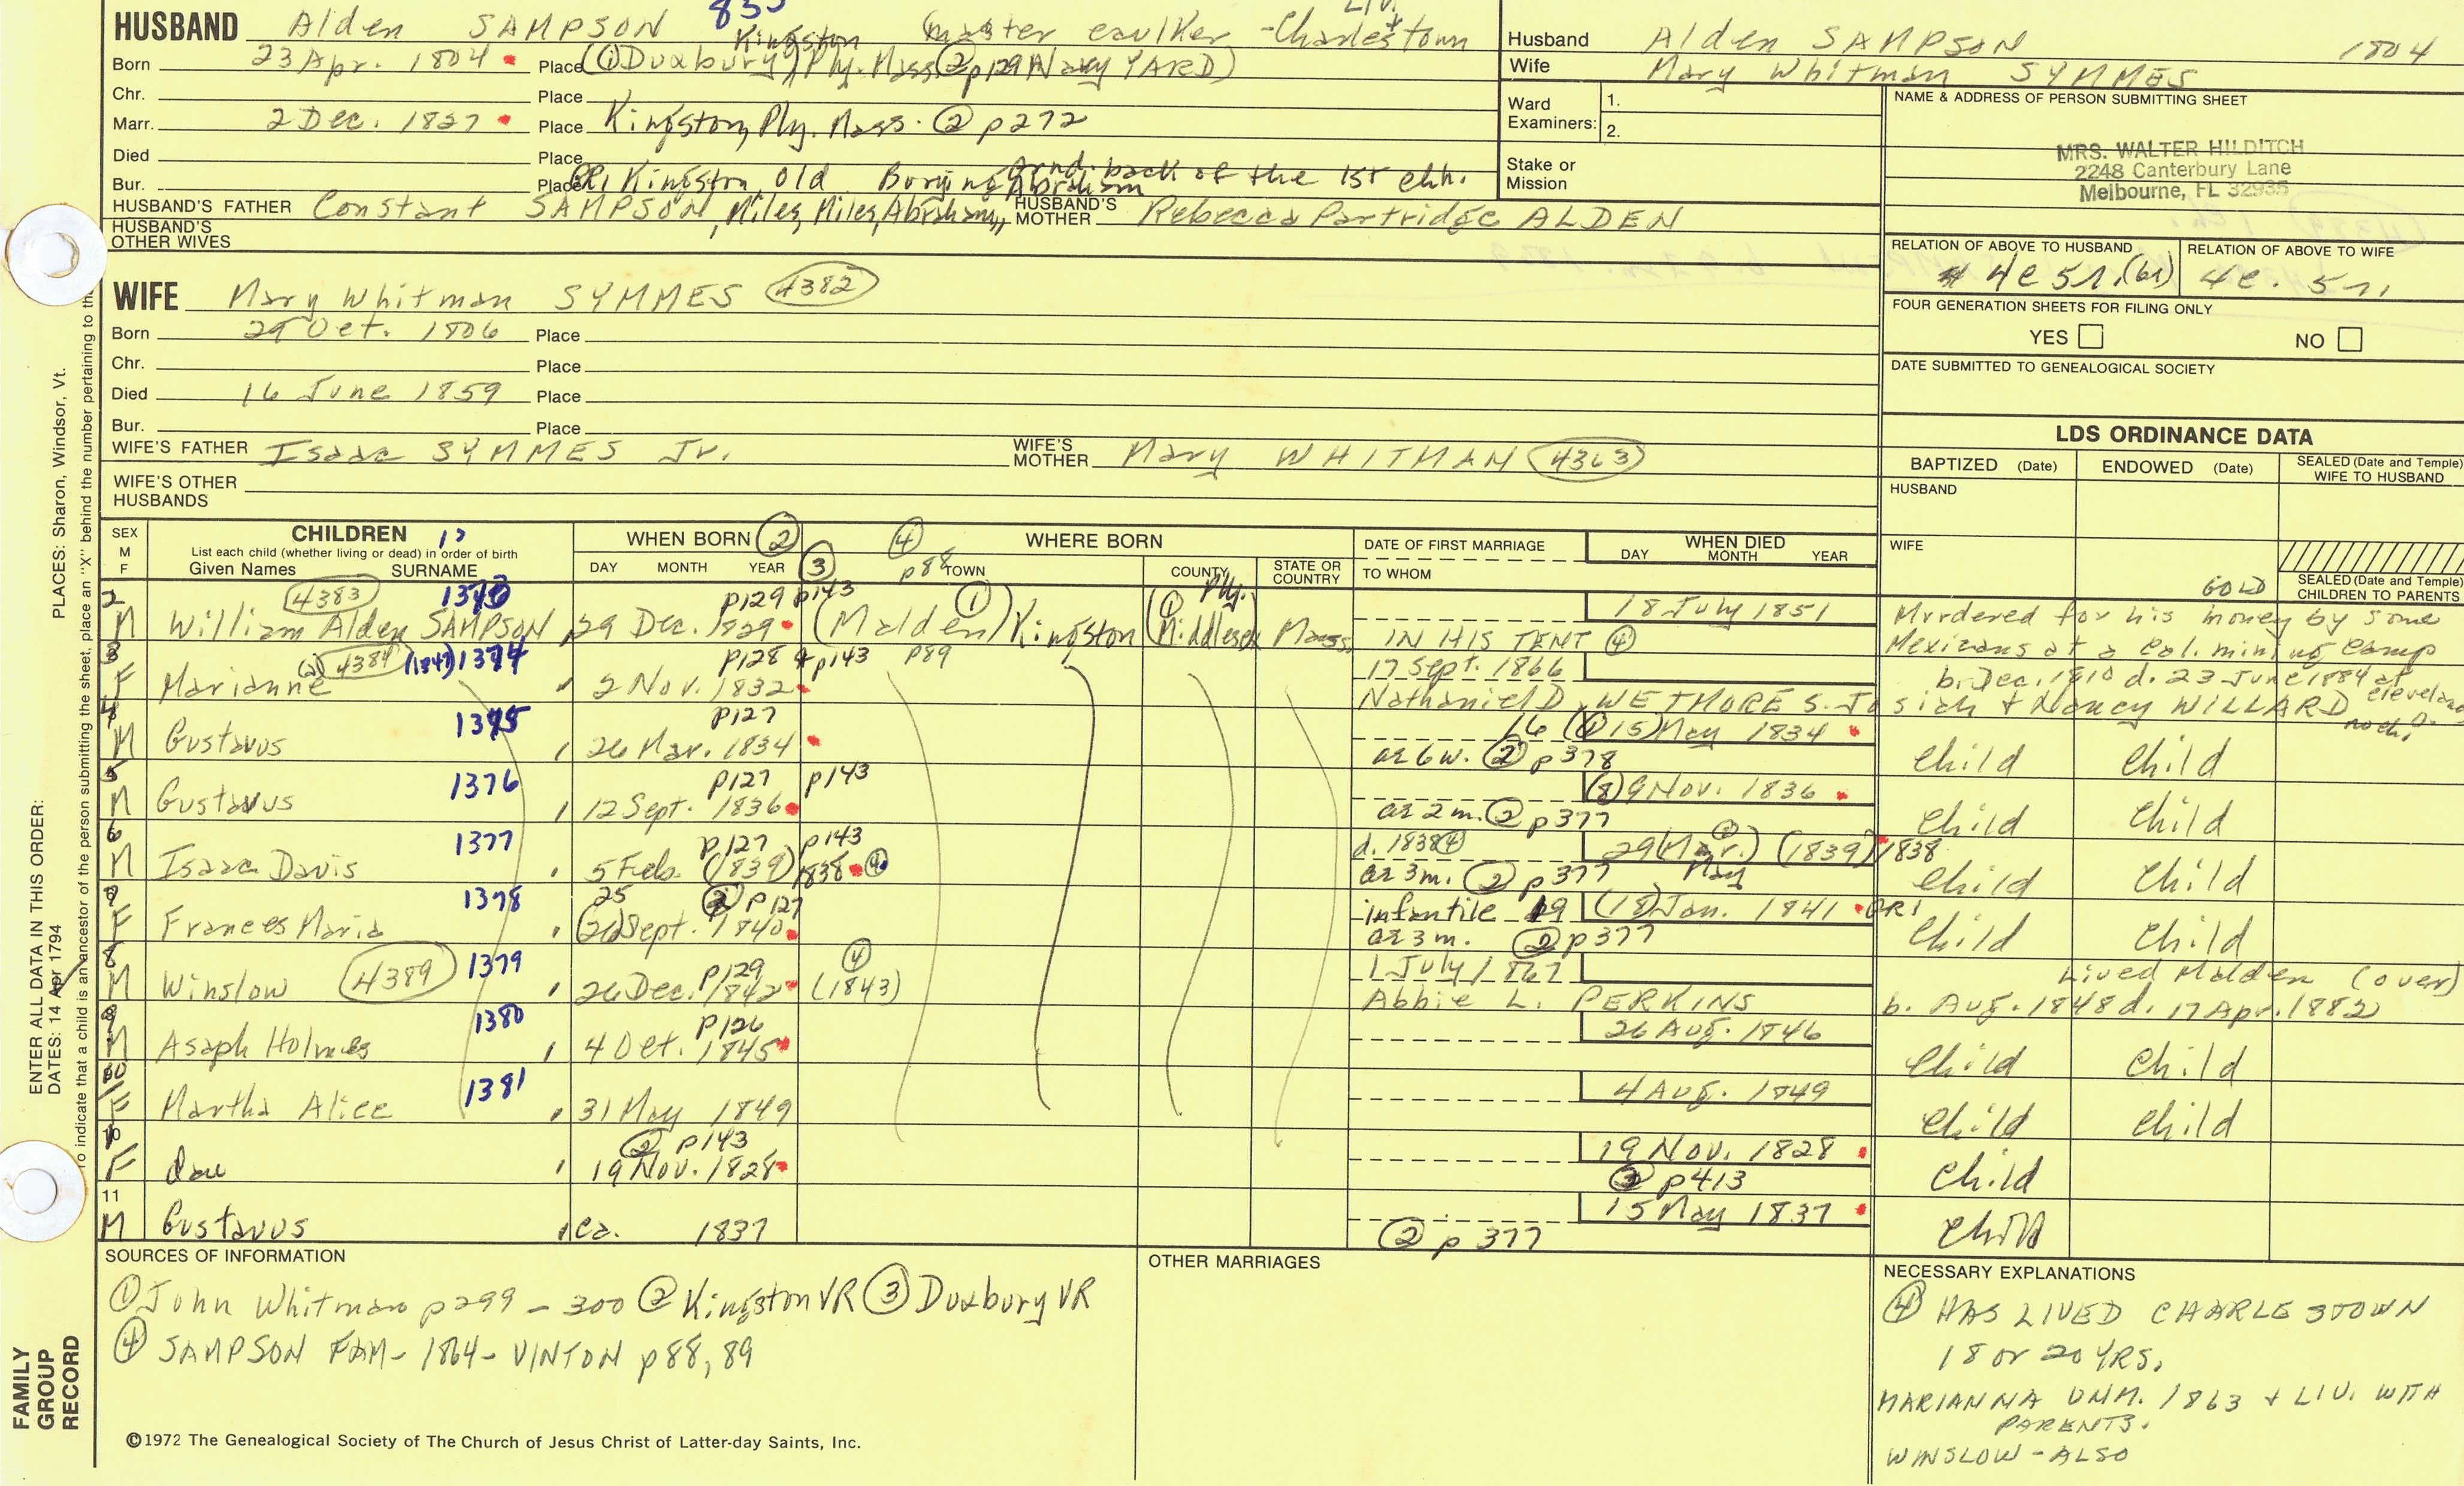 HUSBAND Alden SAMPSON 833 Kingston (master caulker - Charlestown
Born 23 Apr. 1804 Place (① Duxbury) Ply. Mass ② p129 Navy YARD)
Chr. Place
Marr. 2 Dec. 1827 Place Kingston, Ply. Mass. ② p272
Died Place
Bur. Place GR1 Kingston Old Burying Grnd. back of the 1st chh.
HUSBAND'S FATHER Constant SAMPSON, Miles, Miles, Abraham, Abraham HUSBAND'S MOTHER Rebecca Partridge ALDEN
HUSBAND'S OTHER WIVES
Husband Alden SAMPSON 1804
Wife Mary Whitman SYMMES
Ward Examiners: 1.
2.
Stake or Mission
NAME & ADDRESS OF PERSON SUBMITTING SHEET
MRS. WALTER HILDITCH
2248 Canterbury Lane
Melbourne, FL 32935
RELATION OF ABOVE TO HUSBAND RELATION OF ABOVE TO WIFE
4c 5r. 4c. 5r.
FOUR GENERATION SHEETS FOR FILING ONLY
YES NO
DATE SUBMITTED TO GENEALOGICAL SOCIETY
WIFE Mary Whitman SYMMES 4382
Born 29 Oct. 1806 Place
Chr. Place
Died 16 June 1859 Place
Bur. Place
WIFE'S FATHER Isaac SYMMES Jr. WIFE'S MOTHER Mary WHITMAN 4363
WIFE'S OTHER HUSBANDS
LDS ORDINANCE DATA
BAPTIZED (Date) ENDOWED (Date) SEALED (Date and Temple) WIFE TO HUSBAND
HUSBAND
WIFE
SEALED (Date and Temple) CHILDREN TO PARENTS
SEX M F
CHILDREN
List each child (whether living or dead) in order of birth
Given Names SURNAME
WHEN BORN ②
DAY MONTH YEAR ③
④ p88 WHERE BORN
TOWN COUNTY STATE OR COUNTRY
DATE OF FIRST MARRIAGE
TO WHOM
WHEN DIED
DAY MONTH YEAR
2 4383 1373 p129 p143 ① Ply.
M William Alden SAMPSON 29 Dec. 1829 (Malden) Kingston (① Middlesex Mass. 18 July 1851
IN HIS TENT ④
Murdered for his money by some Mexicans at a Cal. GOLD mining camp
3 4384 (1847) 1374 p128 p143 p89
F Marianne 2 Nov. 1832 17 Sept. 1866
Nathaniel D. WETMORE S. Josiah + Nancy WILLARD
b. Dec. 1810 d. 23 June 1884 at Cleveland O.
no ch.
4 1375 p127
M Gustavus 26 Mar. 1834 16 (① 15) May 1834
ae 6 w. ② p378 Child Child
5 1376 p127 p143
M Gustavus 12 Sept. 1836 (8) 9 Nov. 1836
ae 2 m. ② p377 Child Child
6 1377 p127 p143
M Isaac Davis 5 Feb. (1839) 1838 ④ d. 1838 ④ 29 (Mar.) May (1839) 1838
ae 3 m. ② p377 Child Child
7 1378 25 ② p127
F Frances Maria (26) Sept. 1840 infantile 19 (18) Jan. 1841 GR1
ae 3 m. ② p377 Child Child
8 4389 1379 p129 ④
M Winslow 26 Dec. 1842 (1843) 1 July 1867
Abbie L. PERKINS Lived Malden (over)
b. Aug. 1848 d. 17 Apr. 1882)
9 1380 p126
M Asaph Holmes 4 Oct. 1845 26 Aug. 1846
Child Child
1381
F Martha Alice 31 May 1849 4 Aug. 1849
Child Child
10 ② p143
F Dau 19 Nov. 1828 19 Nov. 1828
p413 Child
11
M Gustavus ca. 1837 15 May 1837
② p377 Child
SOURCES OF INFORMATION
① John Whitman p299 - 300 ② Kingston VR ③ Duxbury VR
④ SAMPSON FAM - 1864 - VINTON p88, 89
OTHER MARRIAGES
NECESSARY EXPLANATIONS
④ HAS LIVED CHARLESTOWN
18 or 20 YRS.
MARIANNA UNM. 1863 + LIV. WITH
PARENTS.
WINSLOW - ALSO
©1972 The Genealogical Society of The Church of Jesus Christ of Latter-day Saints, Inc.
FAMILY GROUP RECORD
ENTER ALL DATA IN THIS ORDER:
DATES: 14 Apr 1794
PLACES: Sharon, Windsor, Vt.
To indicate that a child is an ancestor of the person submitting the sheet, place an "X" behind the number pertaining to